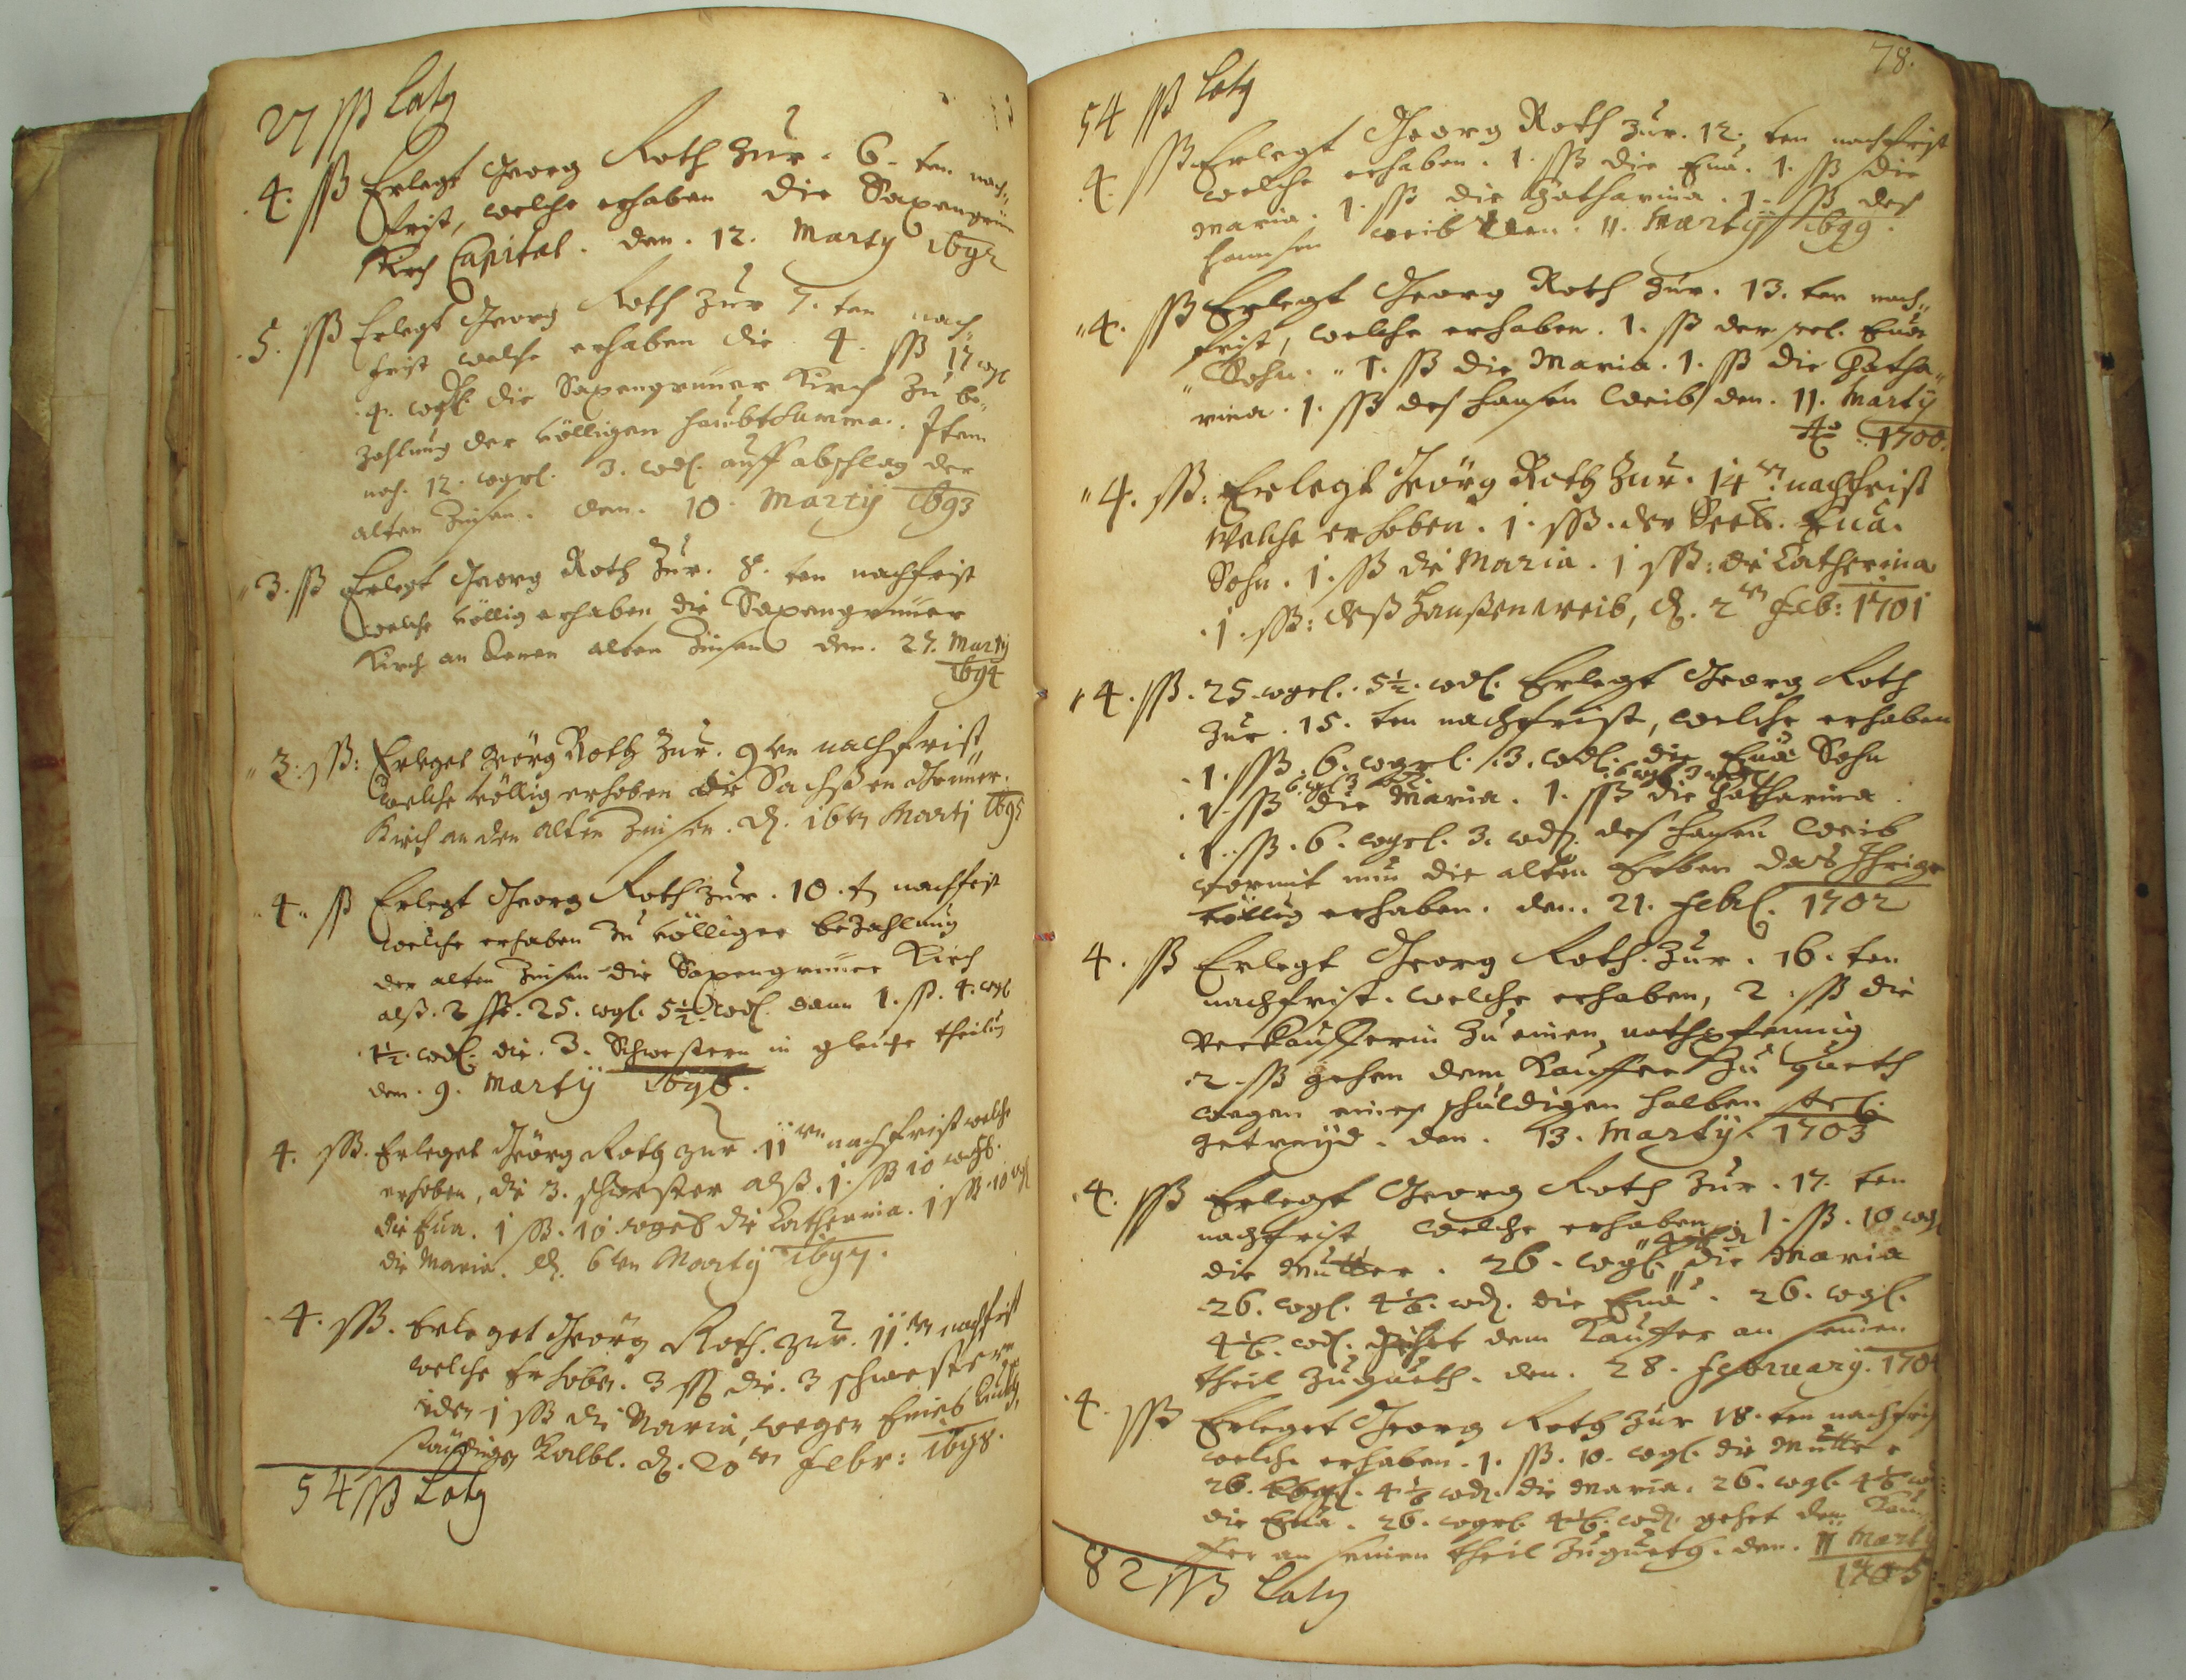 27 ßß Latg
4. ßß Erlegt Georg Roth zur. 6. ten nach„
frist, welche erhaben die Saxengrün
Kirch Capital. den. 12. Marty 1692
5. ßß Erlegt Georg Roth zur 7. ten nach„
frist welche erhaben die 4. ßß 17 wgl
4. wgl. die Saxengrüner Kirch zu be„
zahlung der völligen haubtsumma. Item
noch. 12. wgrl. 3. wdl. auff abschlag der
alten Zinsen. den. 10. Martij 1693
3. ßß Erlegt Georg Roth zur. 8. ten nachfrist
welche völlig erhaben die Saxengrüner
Kirch an denen alten Zinsen den. 27. Martij
1694
3. ßß: Erleget Jörg Roth zur. 9ten nachfrist,
welche völlig erhoben die Sachßen Grüner.
Kirch an den alten Zinsen. d. 16ten Martj 1695
4. ßß Erlegt Georg Roth zur. 10. t. nachfrist
welche erhaben zu völliger bezahlung
der alten Zinsen die Saxengrüner Kirch
alß. 2 ßß. 25. wgl. 5½ wdl. dann 1. ßß. 4. wgl
1½. wdl. die. 3. Schwestern in gleiche theilung
den. 9. Martij 1696.
4. ßß. Erleget Georg Roth zur. 11ten nachfrist welche
erhoben, die 3. schwester alß. 1. ßß 10 wgl.
die Eua. 1 ßß. 10 wgl die Catherina. 1 ßß. 10 wgl
die Maria. d. 6ten Martij 1697.
4. ßß. Erleget Georg Roth. zur. 11ten nachfrist
welche Erhoben. 3 ßß die. 3 schwestern
1 ßß die Maria, wegen Eines
Kalbl. d. 20ten Febr: 1698.
54 ßß Latg
78.
54 ßß Latg
4. ßß Erlegt Georg Roth zur. 12. ten nachfrist
welche erhaben. 1. ßß die Eua. 1. ßß die
Maria. 1. ßß die Catharina. 1. ßß des
Hansen weib den. 11. Martij 1699.
„4. ßß Erlegt Georg Roth zur. 13. ten nach„
frist, welche erhaben. 1. ßß der seel. Eua
Sohn. 1. ßß die Maria. 1. ßß die Catha„
rina. 1. ßß des Hansen Weib den. 11. Martij
Ao. 1700.
„4. ßß: Erlegt Geörg Roth zur. 14ten nachfrist
Welche erhoben. 1. ßß. der Seel. Eua.
Sohn. 1. ßß die Maria. 1 ßß: die Catherina
1. ßß: deß Hanßen weib, d. 2ten Feb: 1701
4. ßß. 25. wgrl. 5½. wdl. Erlegt Georg Roth
zur. 15. ten nachfrist, welche erhaben
1. ßß 6. wgrl. 3. wdl. die Eua Sohn
1. ßß die Maria. 1. ßß die Catharina.
1. ßß. 6. wgrl. 3. wdl. des Hansen Weib
wormit nun die alten Erben das Ihrige
völlig erhaben. den. 21. Febl. 1702
4. ßß Erlegt Georg Roth. zur. 16. ten
nachfrist. welche erhaben, 2. ßß die
Verkaufferin zu einen nothpfennig
2. ßß gehen dem Kauffer zu gueth
wegen eines schuldigen halben
getreyd. den. 13. Martij. 1703
4. ßß Erlegt Georg Roth zur. 17. ten
nachfrist welche erhaben. 1. ßß. 10 wgl
die Mutter. 26. wgl. die Maria
26. wgl. 4⅙. wdl. die Eua. 26. wgl.
4⅙. wdl. gehet dem Kauffer an seinen
theil zugueth. den. 28. February. 1704
4. ßß Erleget Georg Roth zur 18. ten nachfrist
welche erhaben. 1. ßß. 10. wgl. die Mutter
26. wgrl. 4⅙ wdl. die Maria. 26. wgl. 4⅙ wdl
die Eua. 26. wgrl. 4⅙. wdl. gehet den Kauf
fer an seinen theil zugueth. den. 11 Martij
1705
82 ßß Latg